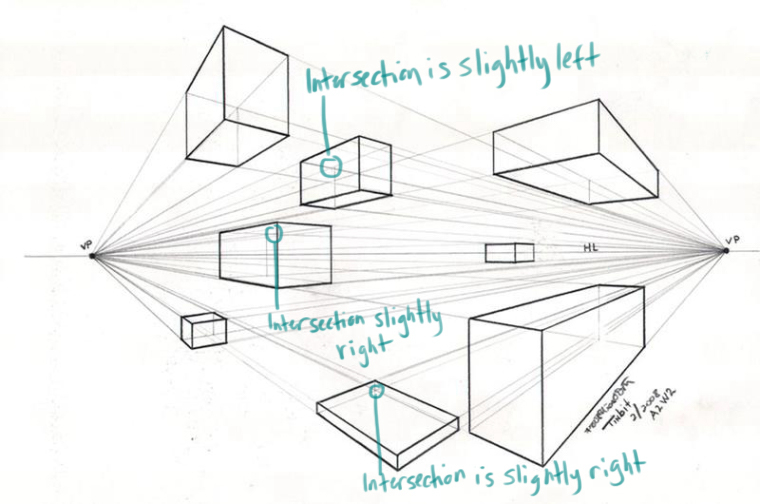 Intersection is slightly left
VP
HL
VP
Intersection slightly
right
Tinbit
2/2008
A2 W2
Intersection is slightly right